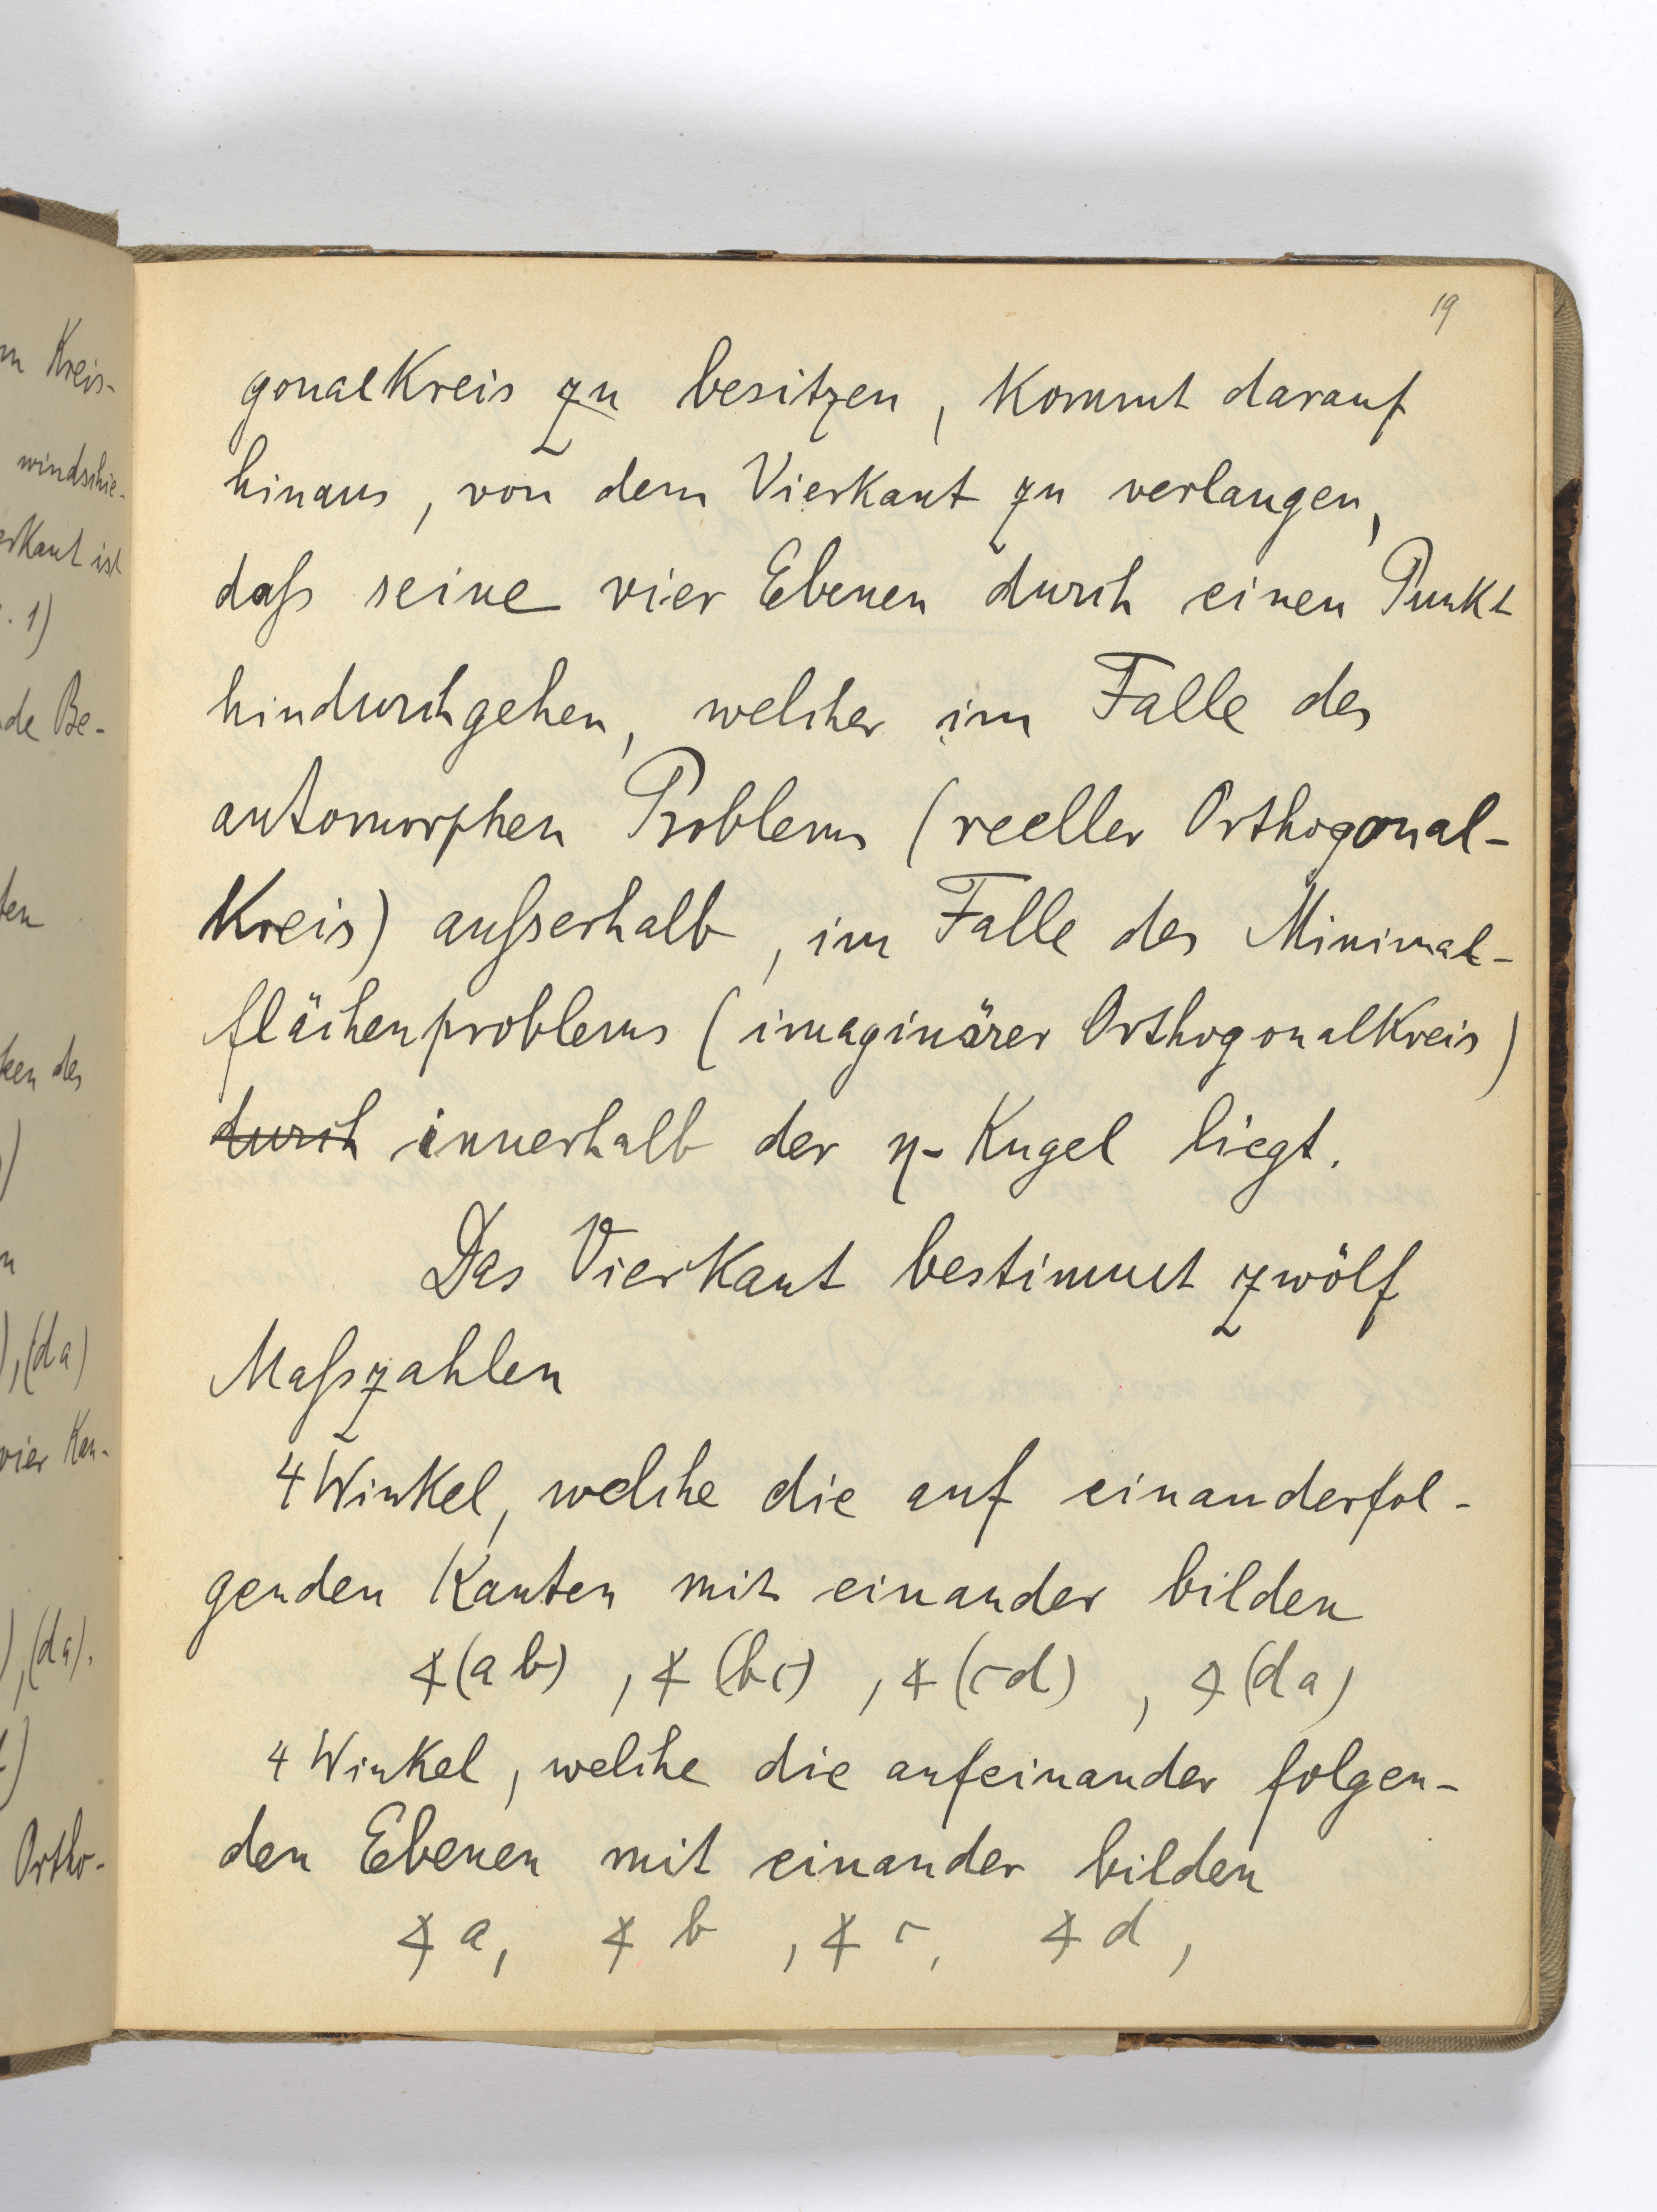 m Kreis-
windschie-
erkant ist
. 1)
de Be-
ten
ken des
)
n
), (da)
vier Kan-
), (da).
)
Ortho-
19
gonalkreis zu besitzen, kommt darauf
hinaus, von dem Vierkant zu verlangen,
daß seine vier Ebenen durch einen Punkt
hindurchgehen, welcher im Falle des
automorphen Problems (reeller Orthogonal-
kreis) außerhalb, im Falle des Minimal-
flächenproblems (imaginärer Orthogonalkreis)
durch innerhalb der η-Kugel liegt.
Das Vierkant bestimmt zwölf
Maßzahlen
4 Winkel, welche die auf einanderfol-
genden Kanten mit einander bilden
∢(ab), ∢(bc), ∢(cd), ∢(da)
4 Winkel, welche die aufeinander folgen-
den Ebenen mit einander bilden
∢ a, ∢ b, ∢ c, ∢ d,